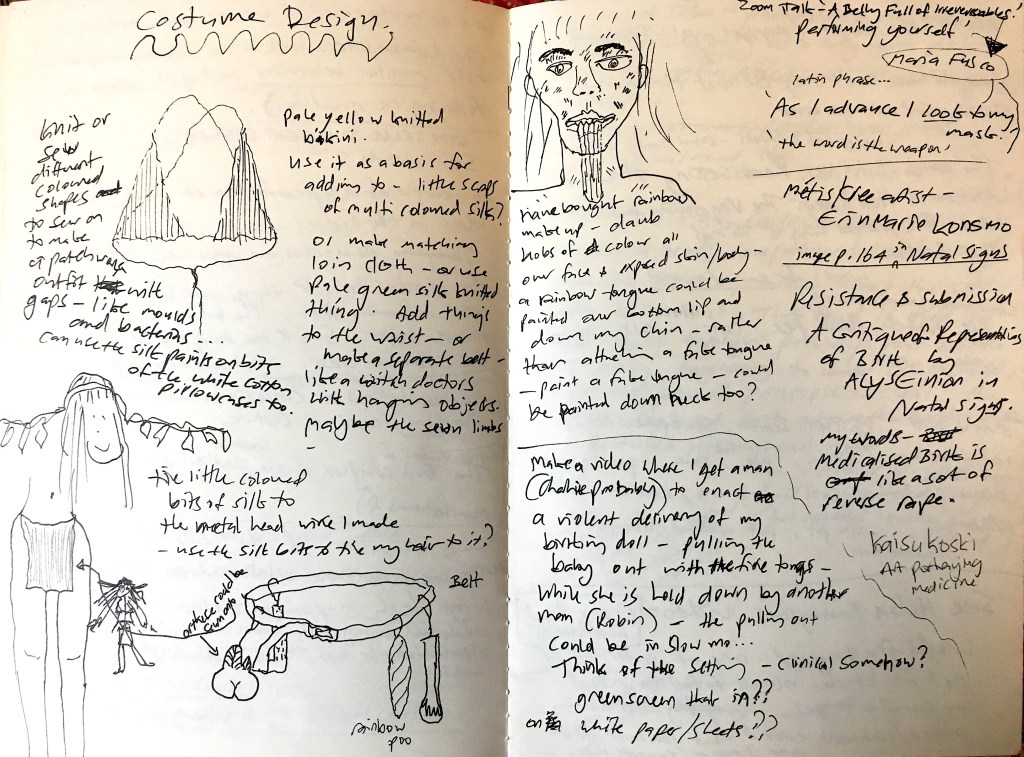 Costume Design.
knit or
sew
different
coloured
shapes
to sew on
to make
a patchwork
outfit with
gaps - like moulds
and bacterias ...
can use the silk paints on bits
of the white cotton
pillowcases too.
pale yellow knitted
bikini.
use it as a basis for
adding to - little scraps
of multi coloured silk?
or make matching
loin cloth - or use
pale green silk knitted
thing. Add things
to the waist - or
make a separate belt -
like a witch doctors
with hanging objects.
maybe the sewn limbs
-
tie little coloured
bits of silk to
the metal head wire I made
- use the silk bits to tie my hair to it?
Belt
or these could be
rainbow
poo
I have bought rainbow
make up - daub
blobs of colour all
over face & exposed skin/body -
a rainbow tongue could be
painted over bottom lip and
down my chin - rather
than attaching a false tongue
- paint a false tongue - could
be painted down neck too?
make a video where I get a man
(probably) to enact
a violent delivery of my
birthing doll - pulling the
baby out with the fire tongs -
while she is held down by another
man (Robin) - the pulling out
could be in slow mo...
Think of the setting - clinical somehow?
greenscreen that in??
on white paper/sheets??
Zoom Talk - 'A Belly Full of Irreversables.'
'performing yourself'
Maria Fusco
latin phrase...
'As I advance I look to my
mask.'
'the word is the weapon'
Métis/Cree artist -
Erin Marie Konsmo
image p. 164 in Natal Signs
Resistance & submission
A Critique of Representations
of Birth by
Alys Einion in
Natal signs.
my words -
Medicalised Birth is
like a sort of
reverse rape.
Kaisu Koski
portraying
medicine